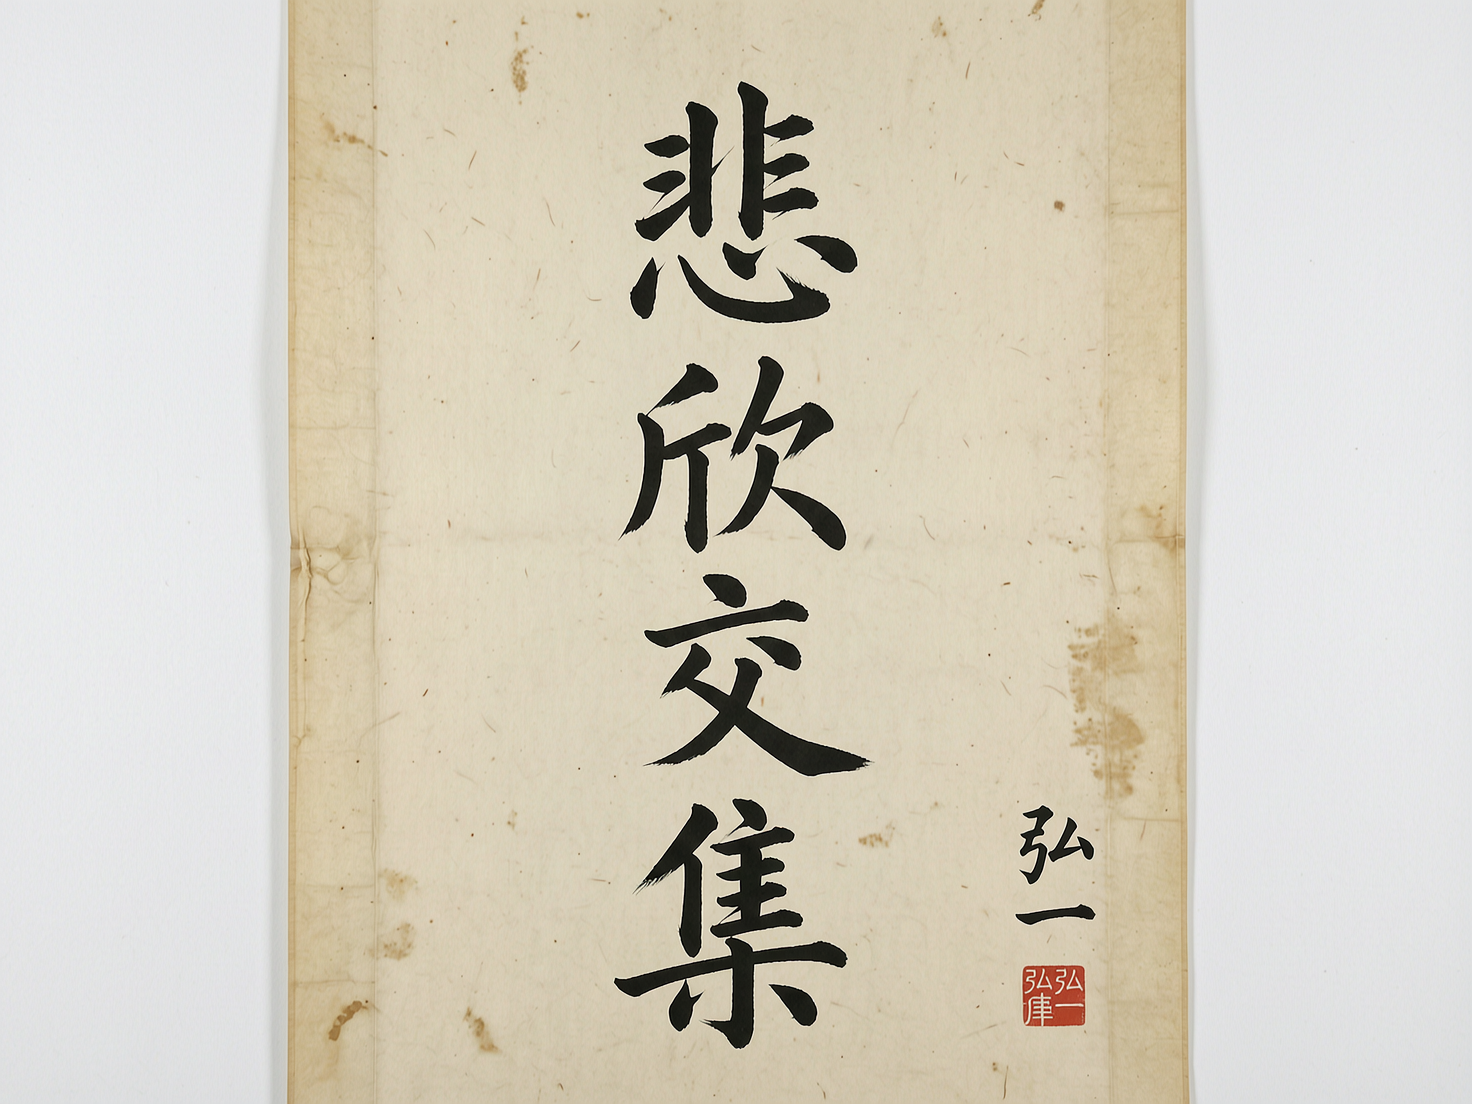 悲欣交集
弘一
弘一
弘